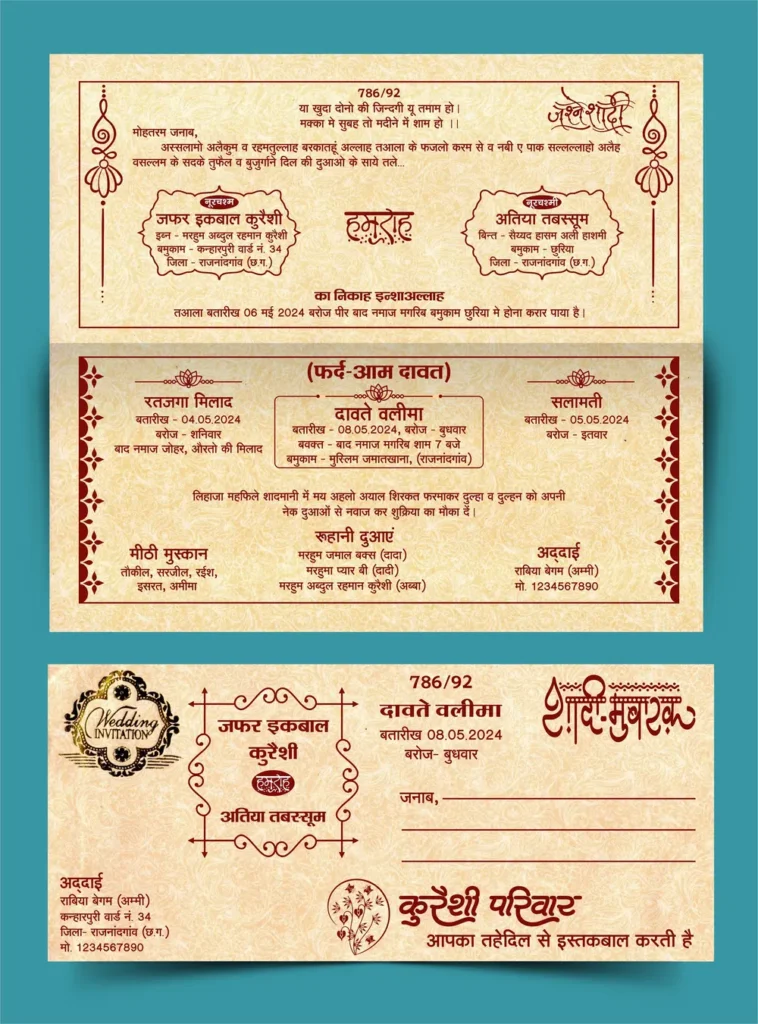 786/92
या खुदा दोनो की जिन्दगी यू तमाम हो।
मक्का मे सुबह तो मदीने में शाम हो ।।
जश्ने शादी
मोहतरम जनाब,
अस्सलामो अलैकुम व रहमतुल्लाह बरकातहूं अल्लाह तआला के फजलो करम से व नबी ए पाक सल्लल्लाहो अलैह
वसल्लम के सदके तुफैल व बुजुर्गाने दिल की दुआओ के साये तले...
नूरचश्म
जफर इकबाल कुरैशी
इब्न - मरहुम अब्दुल रहमान कुरैशी
बमुकाम - कन्हारपुरी वार्ड नं. 34
जिला - राजनांदगांव (छ.ग.)
हमुरोह
नूरचश्मी
अतिया तबस्सूम
बिन्त - सैय्यद हासम अली हाशमी
बमुकाम - छुरिया
जिला - राजनांदगांव (छ.ग.)
का निकाह इन्शाअल्लाह
तआला बतारीख 06 मई 2024 बरोज पीर बाद नमाज मगरिब बमुकाम छुरिया मे होना करार पाया है।
(फर्द-आम दावत)
रतजगा मिलाद
बतारीख - 04.05.2024
बरोज - शनिवार
बाद नमाज जोहर, औरतो की मिलाद
दावते वलीमा
बतारीख - 08.05.2024, बरोज - बुधवार
बवक्त - बाद नमाज मगरिब शाम 7 बजे
बमुकाम - मुस्लिम जमातखाना, (राजनांदगांव)
सलामती
बतारीख - 05.05.2024
बरोज - इतवार
लिहाजा महफिले शादमानी में मय अहलो अयाल शिरकत फरमाकर दुल्हा व दुल्हन को अपनी
नेक दुआओं से नवाज कर शुक्रिया का मौका दें।
मीठी मुस्कान
तौकील, सरजील, रईश,
इसरत, अमीमा
रूहानी दुआएं
मरहुम जमाल बक्स (दादा)
मरहुमा प्यार बी (दादी)
मरहुम अब्दुल रहमान कुरैशी (अब्बा)
अद्दाई
राबिया बेगम (अम्मी)
मो. 1234567890
Wedding
INVITATION
जफर इकबाल
कुरैशी
हमुरोह
अतिया तबस्सूम
786/92
दावते वलीमा
बतारीख 08.05.2024
बरोज- बुधवार
शादी-मुबारक
जनाब,
अद्दाई
राबिया बेगम (अम्मी)
कन्हारपुरी वार्ड नं. 34
जिला- राजनांदगांव (छ.ग.)
मो. 1234567890
कुरैशी परिवार
आपका तहेदिल से इस्तकबाल करती है